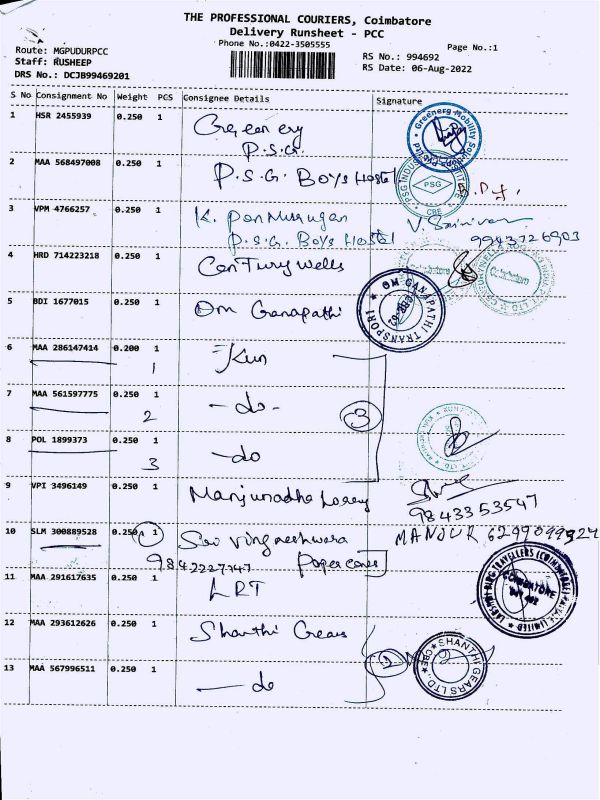 THE PROFESSIONAL COURIERS, Coimbatore
Delivery Runsheet - PCC
Phone No.:0422-3505555
Page No.:1
Route: MGPUDURPCC
Staff: RUSHEEP
DRS No.: DCJB99469201
RS No.: 994692
RS Date: 06-Aug-2022
S No Consignment No Weight PCS Consignee Details Signature
1 HSR 2455939 0.250 1 Greenery
P.S.G.
2 MAA 568497008 0.250 1 P.S.G. Boys Hostel
3 VPM 4766257 0.250 1 K. Ponmurugan
P.S.G. Boys Hostel
9943726903
4 HRD 714223218 0.250 1 Century wells
5 BDI 1677015 0.250 1 Om Ganapathi
OM GANAPATHI TRANSPORT
6 MAA 286147414 0.200 1
1
7 MAA 561597775 0.250 1 - do -
2
3
8 POL 1899373 0.250 1 - do
3
9 VPI 3496149 0.250 1 Manjunadha
9843353547
MANJUR 6299099324
10 SLM 300889528 0.250 1 Sri Vingneshwara
9842227747 Paper cones
11 MAA 291617635 0.250 1 LRT
COIMBATORE
12 MAA 293612626 0.250 1 Shanthi Gears
SHANTHI GEARS LTD.,
CBE
13 MAA 567996511 0.250 1 - do
Greenerg Mobility
PSG
CBE